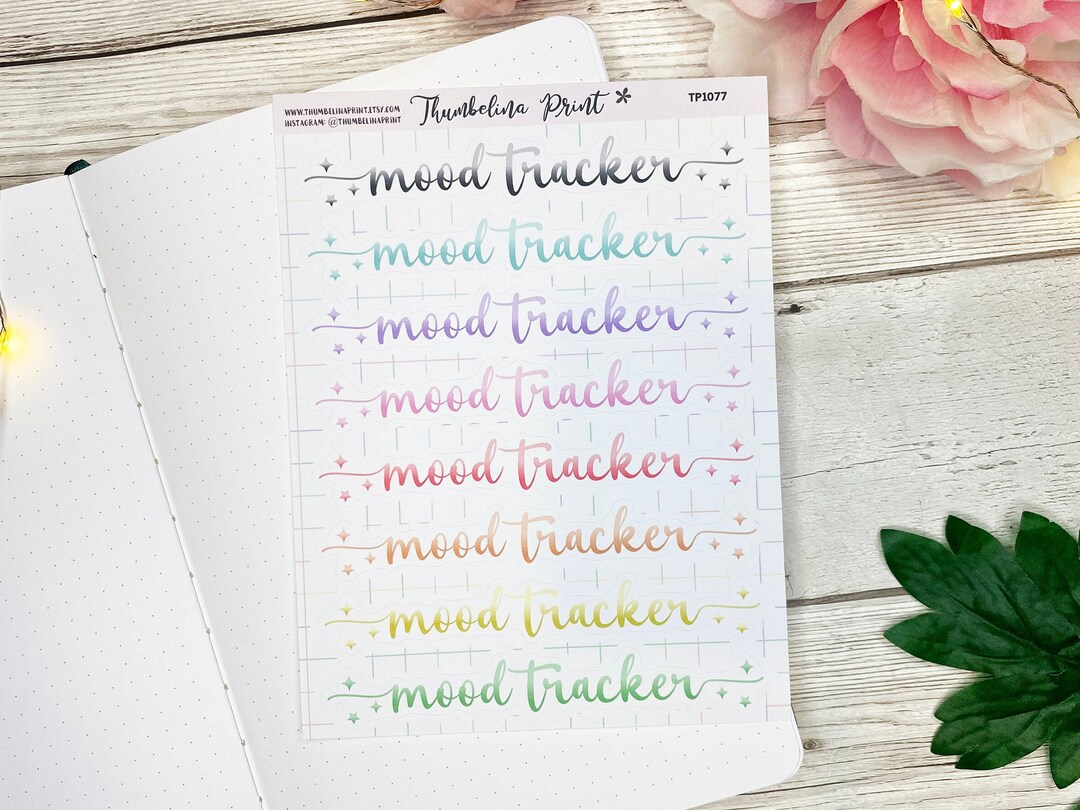 WWW.THUMBELINAPRINT.ETSY.COM
INSTAGRAM: @THUMBELINAPRINT
Thumbelina Print
TP1077
mood tracker
mood tracker
mood tracker
mood tracker
mood tracker
mood tracker
mood tracker
mood tracker